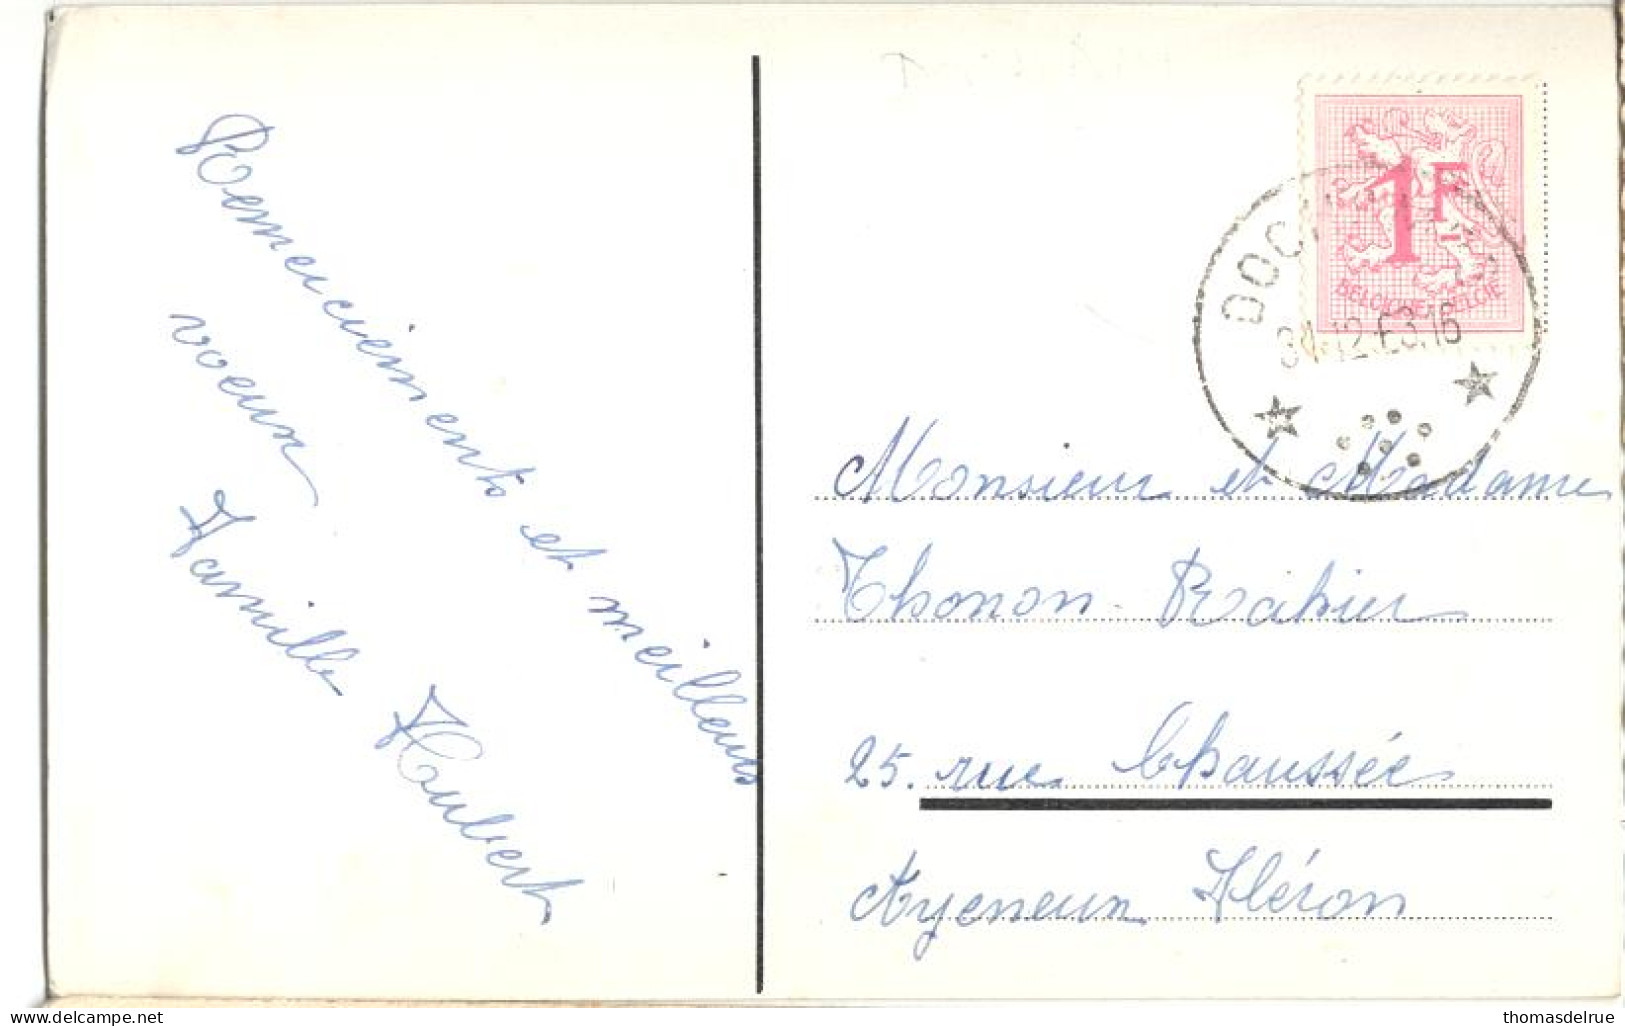 Remerciements et meilleurs
voeux
Famille Hubert
1F
BELGIQUE BELGIE
12.63.16
Monsieur et Madame
Thonon-Rahier
25. rue Chaussée
Ayeneux Fléron
www.delcampe.net
thomasdelrue